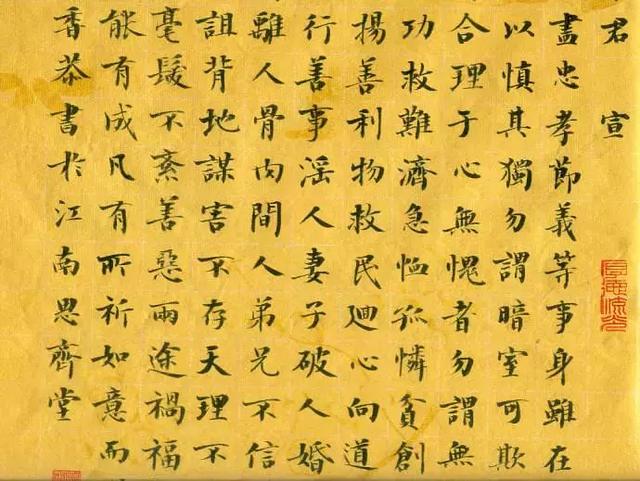 君宣
盡忠孝節義等事身雖在
以慎其獨勿謂暗室可欺
合理于心無愧者勿謂無
功救難濟急恤孤憐貧創
揚善利物救民廻心向道
行善事淫人妻子破人婚
離人骨肉間人弟兄不信
詛背地謀害不存天理不
毫髮不紊善惡兩途禍福
能有成凡有所祈如意而
香恭書於江南思齊堂